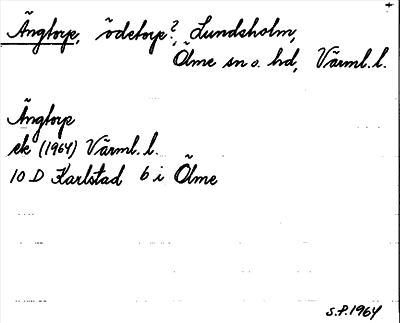 Ängtorp, ödetorp?, Lundsholm,
Ölme sn o. hd, Värml. l.
Ängtorp
ek (1964) Värml. l.
10 D Karlstad 6 i Ölme
S.P. 1964